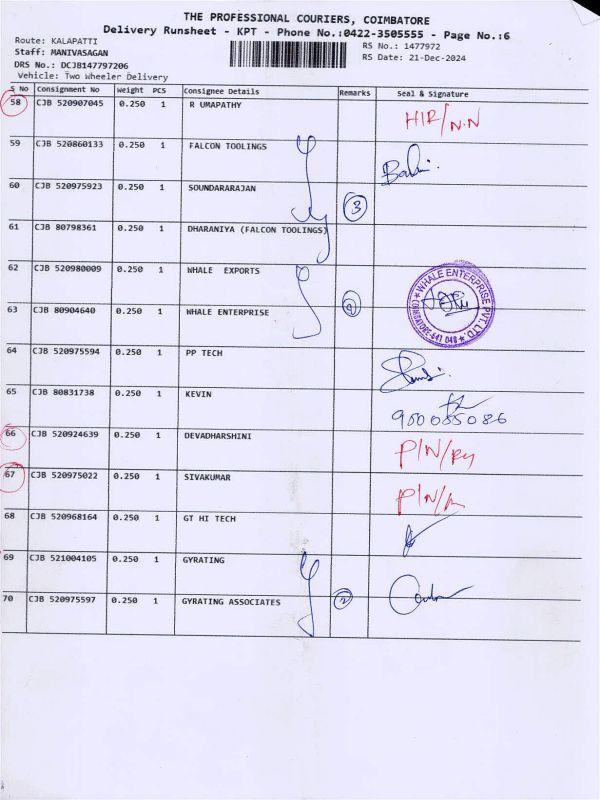 THE PROFESSIONAL COURIERS, COIMBATORE
Delivery Runsheet - KPT - Phone No.:0422-3505555 - Page No.:6
Route: KALAPATTI RS No.: 1477972
Staff: MANIVASAGAN RS Date: 21-Dec-2024
DRS No.: DCJB147797206
Vehicle: Two Wheeler Delivery
S No Consignment No Weight PCS Consignee Details Remarks Seal & Signature
58 CJB 520907045 0.250 1 R UMAPATHY
59 CJB 520860133 0.250 1 FALCON TOOLINGS
60 CJB 520975923 0.250 1 SOUNDARARAJAN 3
61 CJB 80798361 0.250 1 DHARANIYA (FALCON TOOLINGS)
62 CJB 520980009 0.250 1 WHALE EXPORTS
WHALE ENTERPRISE PVT. LTD. * COIMBATORE-641 048 *
63 CJB 80904640 0.250 1 WHALE ENTERPRISE
64 CJB 520975594 0.250 1 PP TECH
65 CJB 80831738 0.250 1 KEVIN
66 CJB 520924639 0.250 1 DEVADHARSHINI
67 CJB 520975022 0.250 1 SIVAKUMAR
68 CJB 520968164 0.250 1 GT HI TECH
69 CJB 521004105 0.250 1 GYRATING
70 CJB 520975597 0.250 1 GYRATING ASSOCIATES 2